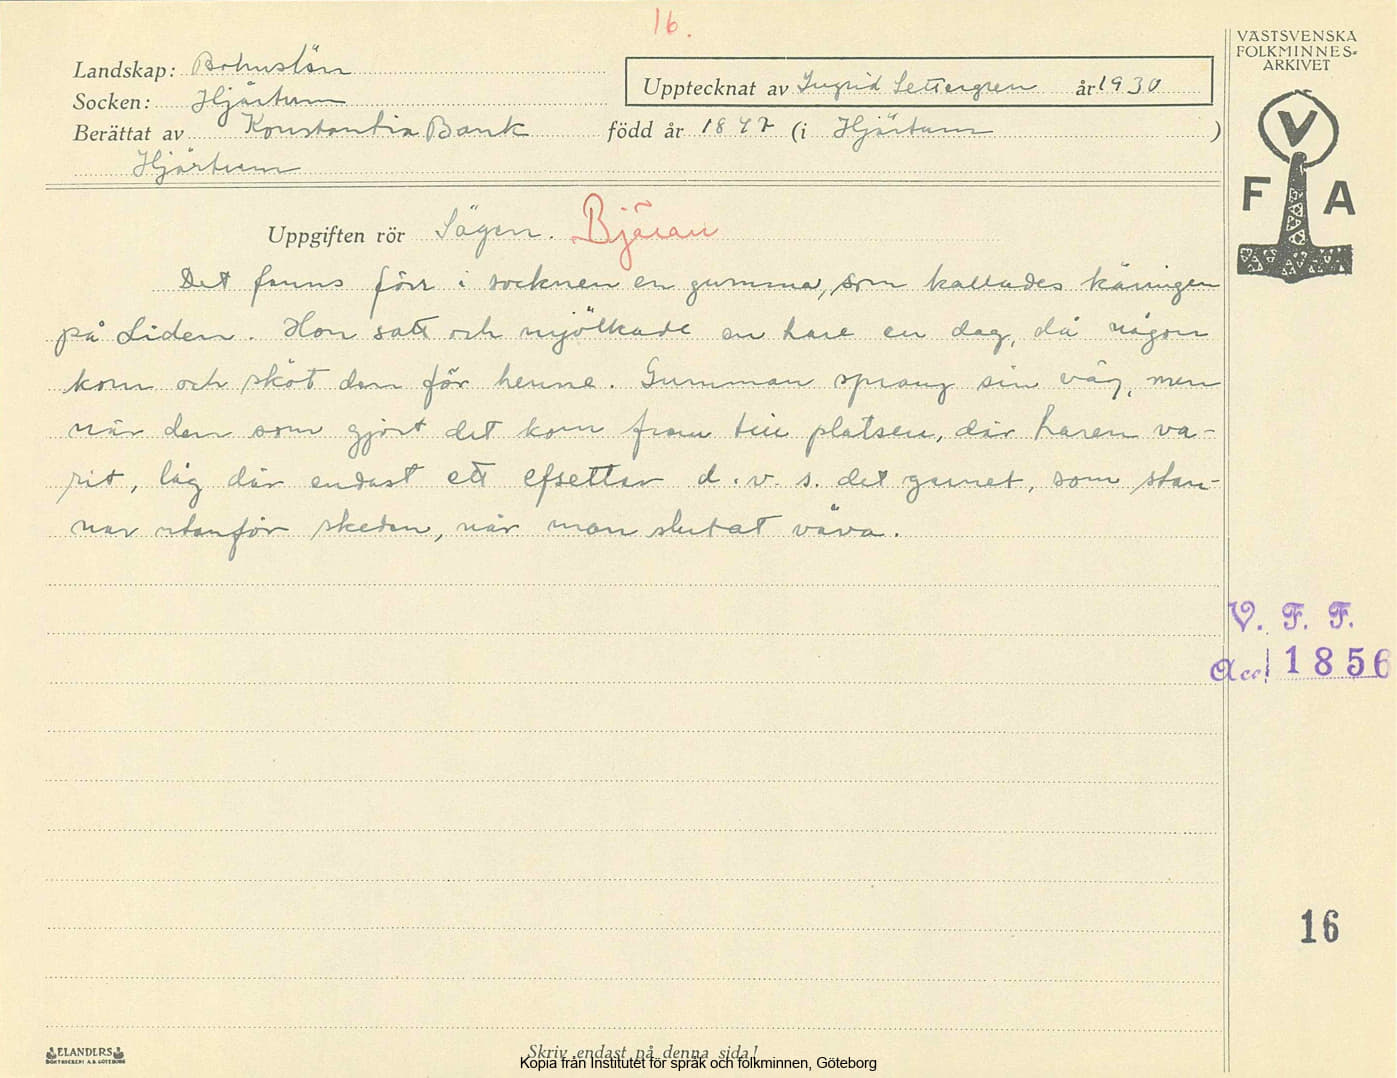 16.
VÄSTSVENSKA
FOLKMINNES-
ARKIVET
Landskap: Bohuslän
Socken: Hjärtum
Upptecknat av Ingrid Settergren år 1930
Berättat av Konstantia Bank född år 1847 (i Hjärtum )
Hjärtum
V
F A
Uppgiften rör Sägen. Bjäran
Det fanns förr i socknen en gumma, som kallades käringen
på Liden. Hon satt och mjölkade en hare en dag, då någon
kom och sköt den för henne. Gumman sprang sin väg, men
när den som gjort det kom fram till platsen, där haren va-
rit, låg där endast ett efsettar d.v.s. det garnet, som stan-
nar utanför skeden, när man slutat väva.
V. F. F.
Acc. 1856
16
ELANDERS
BOKTRYCKERI A.B. GÖTEBORG
Skriv endast på denna sida!
Kopia från Institutet för språk och folkminnen, Göteborg